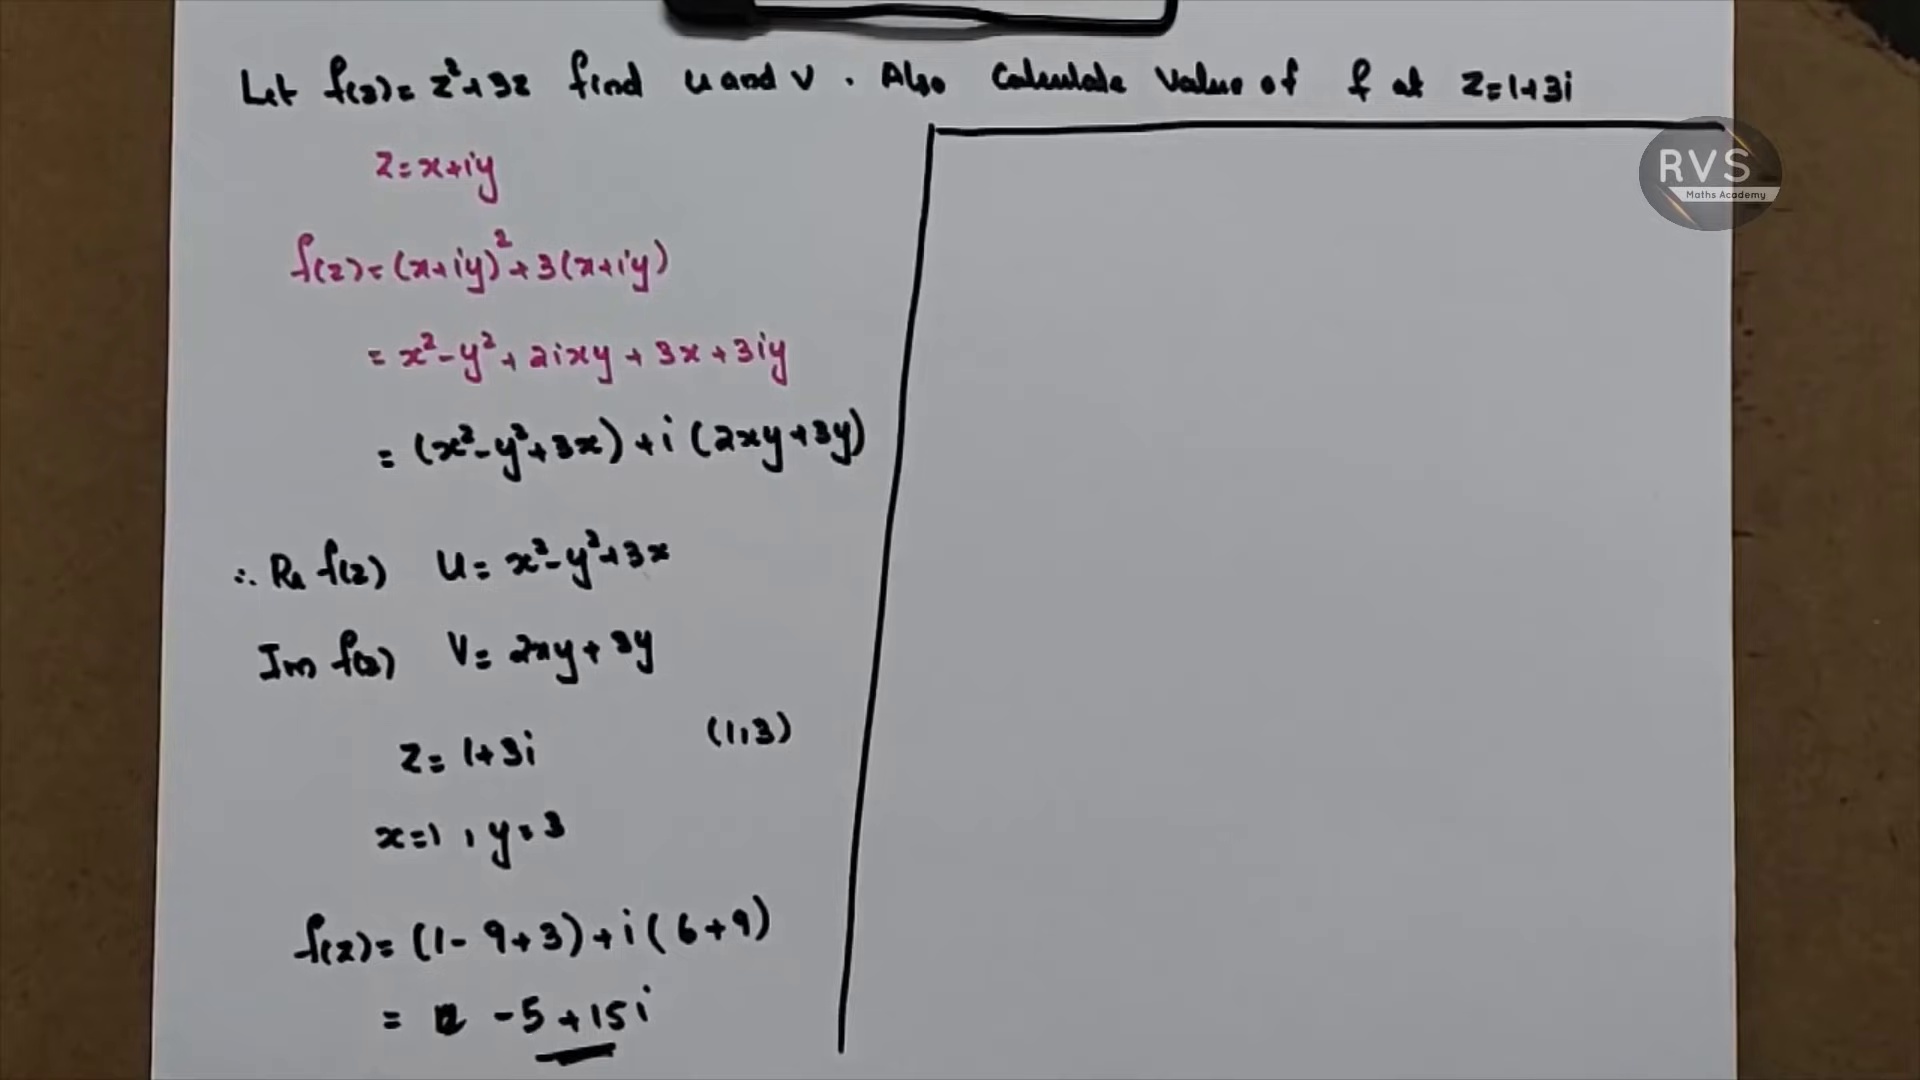 Let f(z) = z² + 3z find u and v. Also Calculate Value of f at z = 1+3i
RVS
Maths Academy
z = x+iy
f(z) = (x+iy)² + 3(x+iy)
= x² - y² + 2ixy + 3x + 3iy
= (x² - y² + 3x) + i (2xy + 3y)
∴ Re f(z) U = x² - y² + 3x
Im f(z) V = 2xy + 3y
z = 1+3i (1,3)
x = 1, y = 3
f(z) = (1 - 9 + 3) + i (6 + 9)
= -5 + 15i